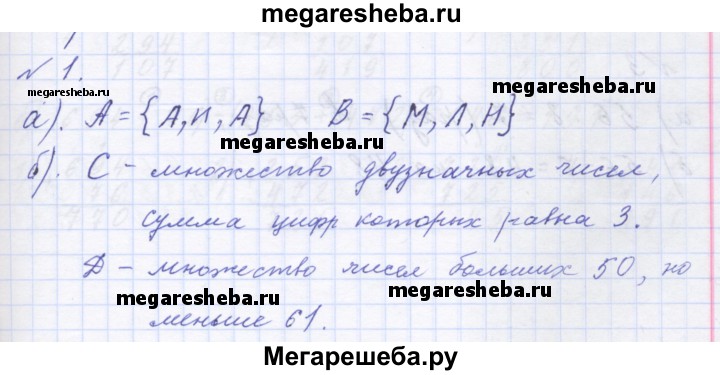 megaresheba.ru
№ 1.
megaresheba.ru
а). А = {А, И, А} В = {М, Л, Н}
megaresheba.ru
б). С – множество двузначных чисел,
сумма цифр которых равна 3.
Д – множество чисел больших 50, но
megaresheba.ru megaresheba.ru
меньше 61.
Мегарешеба.ру